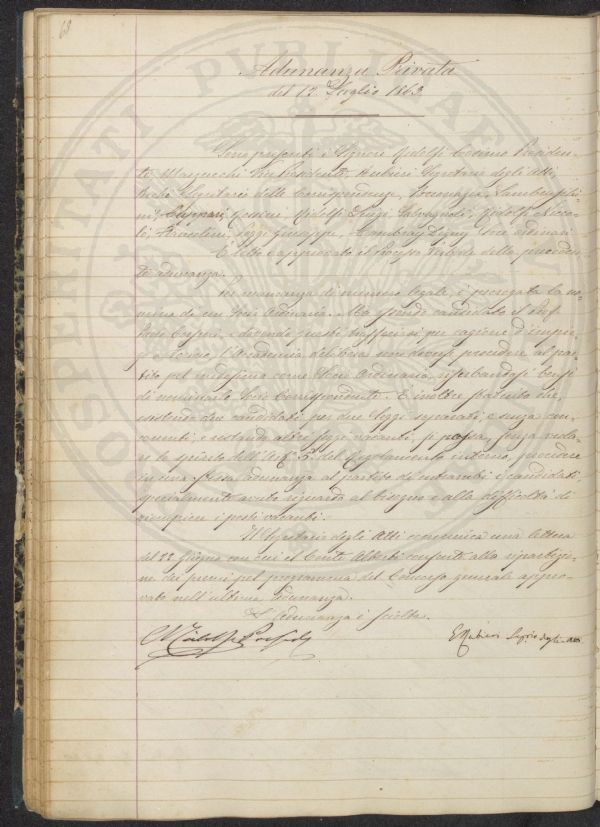 68
PROSPERITATI PUBLICAE AU
Adunanza Privata
del 12 Luglio 1863
Sono presenti i Signori Ridolfi Cosimo Presiden-
te, Vice Presidente, Rubieri Segretario degli Atti,
Segretario delle Corrispondenze, Lambruschi-
ni, Gaspari, Ridolfi Luigi, Salvagnoli, Ridolfi Nicco-
lò, Pozzi Giuseppe, Soci ordinari.
È letto e approvato il Processo Verbale della preceden-
te adunanza.
In mancanza di numero legale, è prorogata la no-
mina di un Socio Ordinario. Ma essendo candidato il Prof.
e dovendo questi per cagione d'impie-
go l'Accademia delibera non doversi procedere al par-
tito pel medesimo come Socio Ordinario, riserbandosi bensì
di nominarlo Socio Corrispondente. È inoltre statuito che
esistendo due candidati per due seggi separati, e senza con-
correnti, e restando altri seggi vacanti, si possa, senza viola-
re lo spirito dell'Art. 5 del Regolamento interno, procedere
in una stessa adunanza al partito di entrambi i candidati,
specialmente avuto riguardo al bisogno e alla difficoltà di
riempire i posti vacanti.
Il Segretario degli Atti comunica una lettera
del 22 Giugno con cui il Conte Alberti consente alla ripartizio-
ne dei premi pel programma del Concorso generale appro-
vato nell'ultima adunanza.
L'adunanza è sciolta.
C Ridolfi Presid
E Rubieri Segrio degli Atti